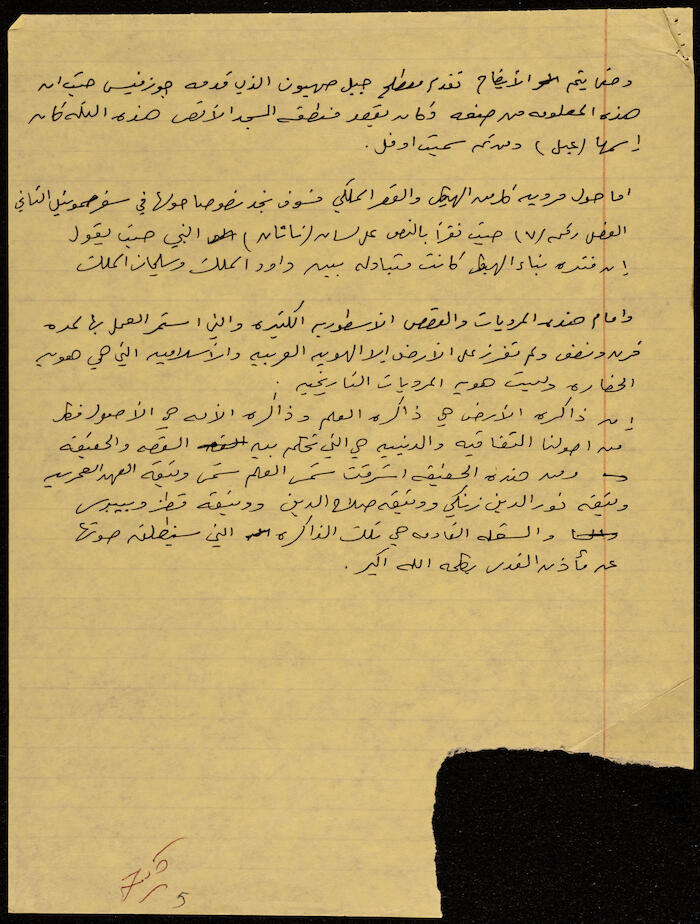 وحتى يتم الأيضاح تقدم مصطلح جبل صهيون الذي قدمه جوزفيس حيث ان
هذه المعلومه من صنعه وكان يقصد منطقه المسجد الأقصى هذه التله كان
إسمها (عبل) ومن ثم سميت اوفل.
اما حول مرويه الهيكل والقصر الملكي فسوف نجد نصوصا حولها في سفر صموئيل الثاني
الفصل رقم (٧) حيث نقرأ بالنص على لسان (ناثان) النبي حيث يقول
إن فتره بناء الهيكل كانت متبادله بين داود الملك وسليمان الملك
وامام هذه المرويات والقصص الاسطوريه الكثيره والتي استمر العمل بها لمده
قرن ونصف ولم تفرز على الأرض إلا الهويه العربيه والأسلاميه التي هي هويه
الحضاره وليست هويه المرويات التاريخيه.
إن ذاكره الأرض هي ذاكره العلم وذاكره الأمه هي الأصول فكل
من اصولنا الثقافيه والدينيه هي التي تحكم بين القصه والحقيقه
ومن هذه الحقيقه اشرقت شمس العلم شمس وثيقه العهد العمريه
وثيقه نور الدين زنكي ووثيقه صلاح الدين ووثيقه قطز وبيبرس
والشعله القادمه هي تلك الذاكره التي سينطلق صوتها
عن مأذن القدس بكلمه الله اكبر.
5